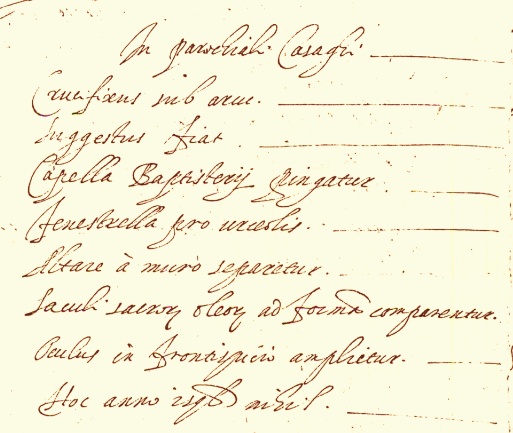 In parochiali Casagli
Crucifixus sub arcu.
Suggestus fiat
Capella Baptisterij pingatur
Fenestrella pro urceolis.
Altare à muro separetur.
Sacculi sacrorum oleorum ad formã comparentur.
Oculus in frontispicio amplietur.
Hoc anno nihil.